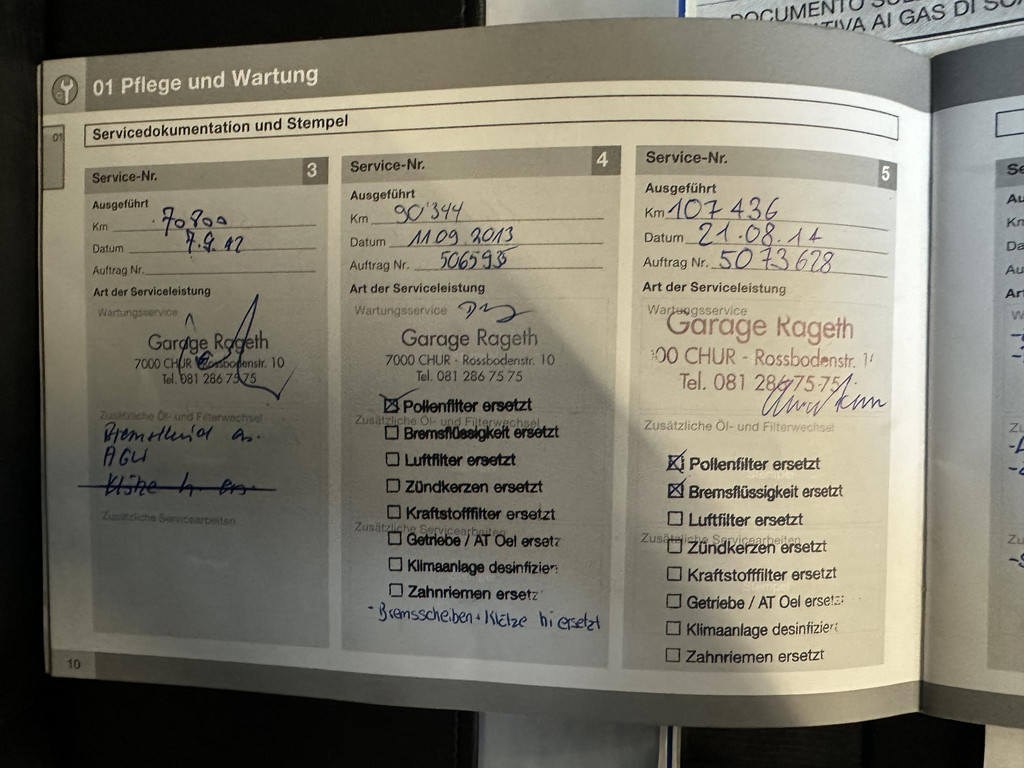 DOCUMENTO
TIVA AI GAS DI
01 Pflege und Wartung
01
Servicedokumentation und Stempel
Service-Nr. 3
Ausgeführt
Km 70800
Datum 7.9.12
Auftrag Nr.
Art der Serviceleistung
Wartungsservice
Garage Rageth
7000 CHUR - Rossbodenstr. 10
Tel. 081 286 75 75
Zusätzliche Öl- und Filterwechsel
AGW
Zusätzliche Servicearbeiten
Service-Nr. 4
Ausgeführt
Km 90'344
Datum 11.09.2013
Auftrag Nr. 5065935
Art der Serviceleistung
Wartungsservice
Garage Rageth
7000 CHUR - Rossbodenstr. 10
Tel. 081 286 75 75
Pollenfilter ersetzt
Zusätzliche Öl- und Filterwechsel
Bremsflüssigkeit ersetzt
Luftfilter ersetzt
Zündkerzen ersetzt
Kraftstofffilter ersetzt
Zusätzliche Servicearbeiten
Getriebe / AT Oel ersetz
Klimaanlage desinfizier
Zahnriemen ersetz
- Bremsscheiben + Klötze hi ersetzt
Service-Nr. 5
Ausgeführt
Km 107 436
Datum 21.08.14
Auftrag Nr. 5073628
Art der Serviceleistung
Wartungsservice
Garage Rageth
00 CHUR - Rossbodenstr. 1
Tel. 081 286 75 75
Zusätzliche Öl- und Filterwechsel
Pollenfilter ersetzt
Bremsflüssigkeit ersetzt
Luftfilter ersetzt
Zusätzliche Servicearbeiten
Zündkerzen ersetzt
Kraftstofffilter ersetzt
Getriebe / AT Oel ersetz
Klimaanlage desinfizier
Zahnriemen ersetzt
10